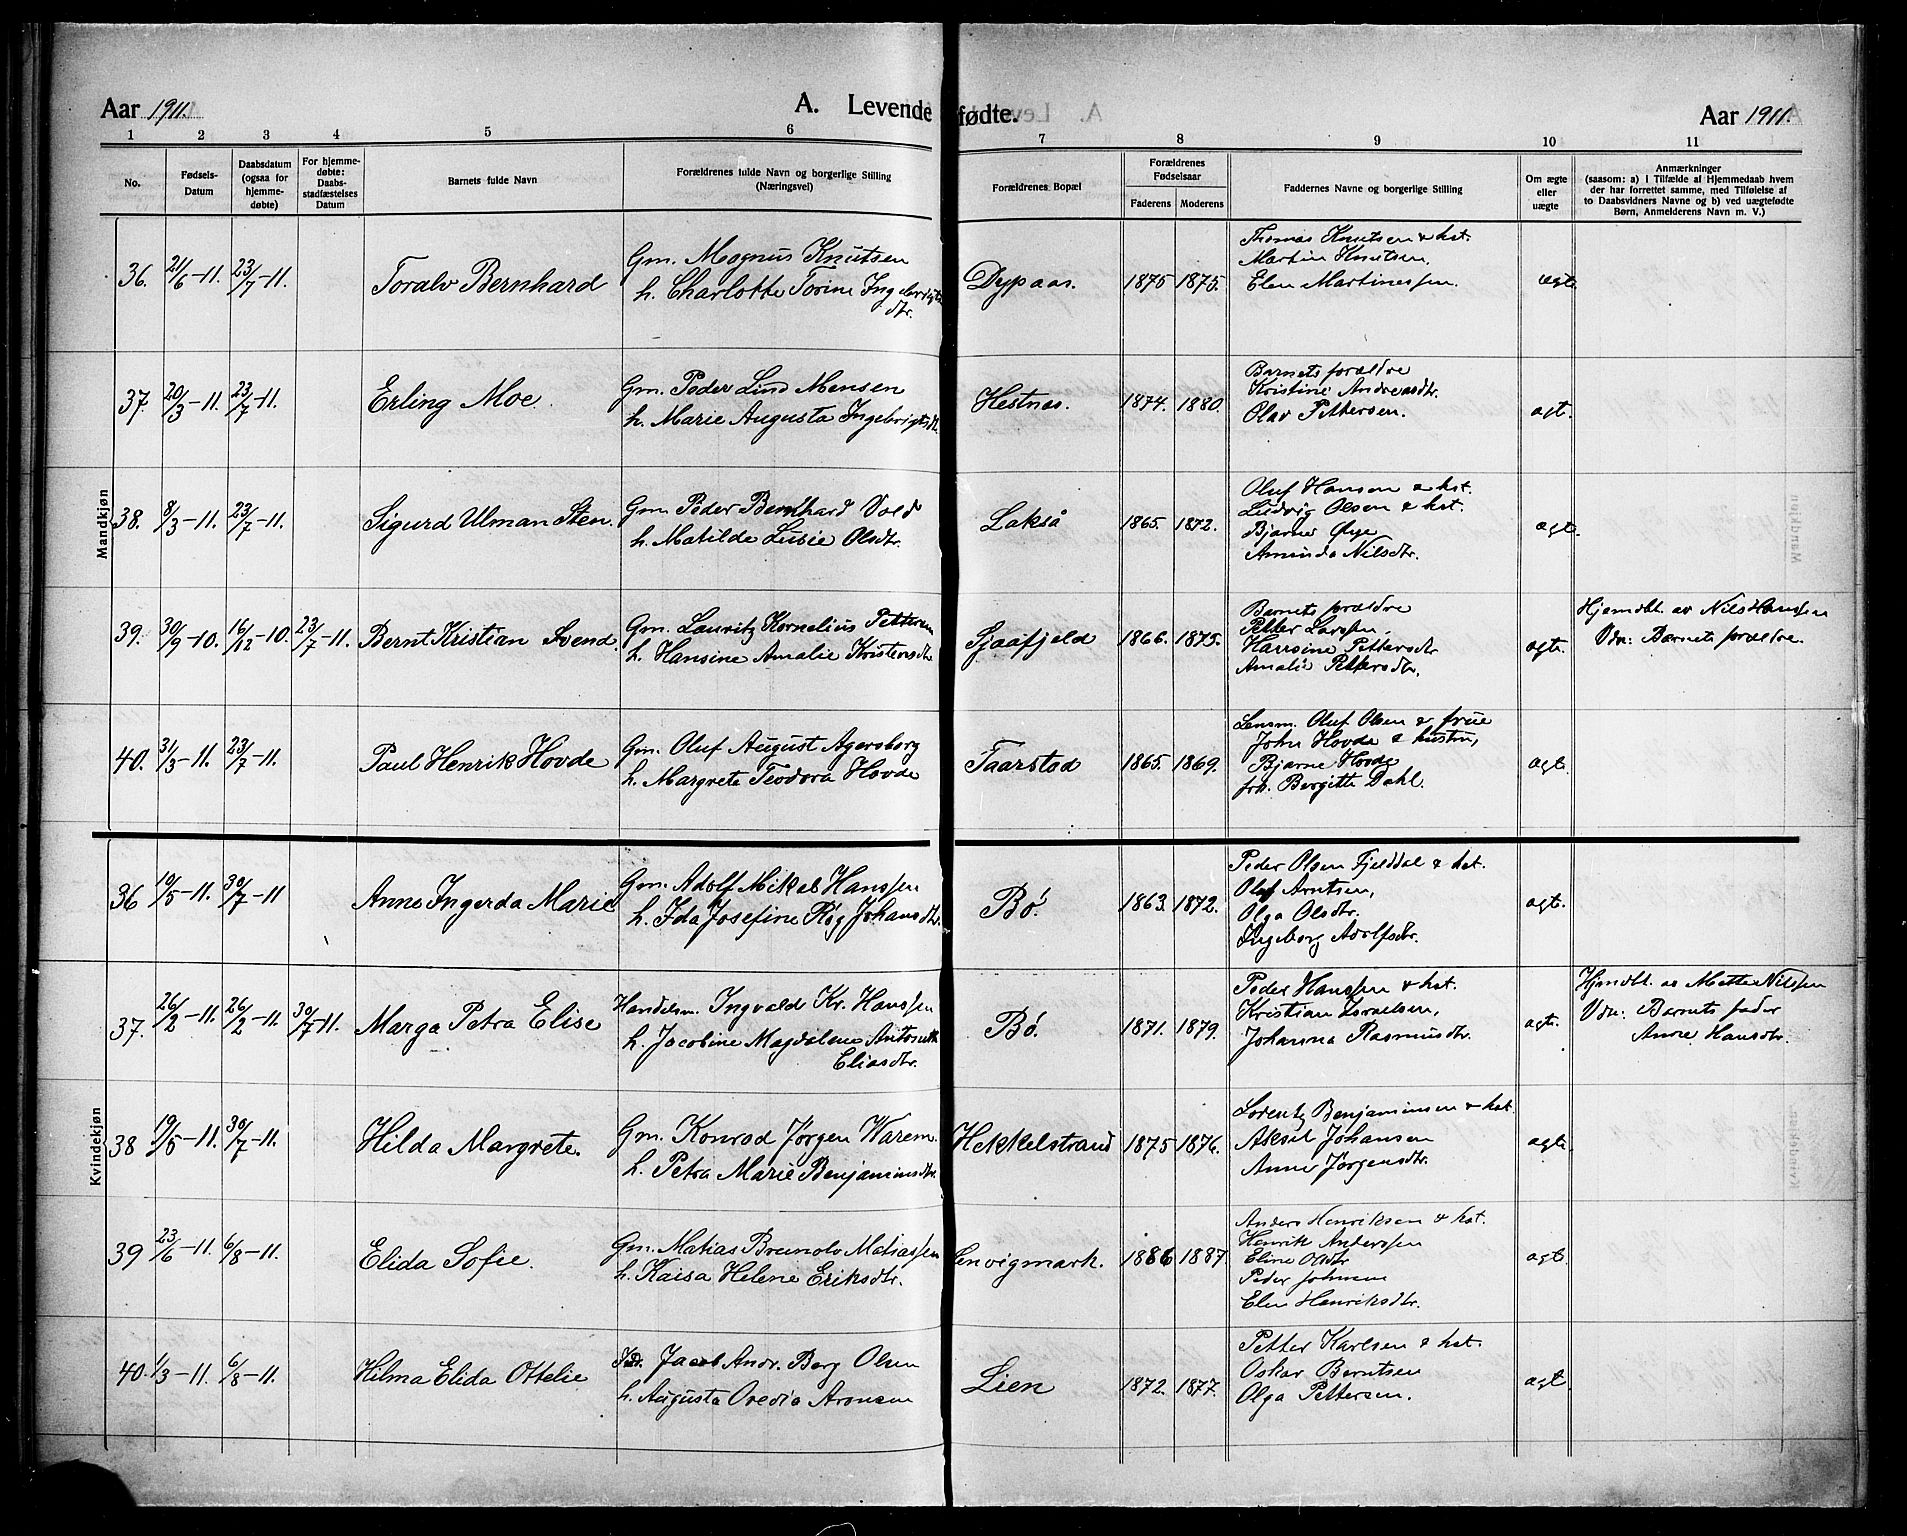 Aar 1911. A. Levende fødte. Aar 1911.
1 2 3 4 5 6 7 8 9 10 11
No.
Fødsels-
Datum
Daabsdatum
(ogsaa for
hjemme-
døbte)
For hjemme-
døbte:
Daabs-
stadfæstelses
Datum
Barnets fulde Navn
Forældrenes fulde Navn og borgerlige Stilling
(Næringsvei)
Forældrenes Bopæl
Forældrenes
Fødselsaar
Faderens Moderens
Faddernes Navne og borgerlige Stilling
Om ægte
eller
uægte
Anmærkninger
(saasom: a) i Tilfælde af Hjemmedaab hvem
der har forrettet samme, med Tilføielse af
to Daabsvidners Navne og b) ved uægtefødte
Børn, Anmelderens Navn m. V.)
Mandkjøn
36. 21/6-11. 23/7-11. Toralv Bernhard
Gm. Magnus Knutsen
h. Charlotte Torine Ingebrigts
dtr.
Dypaas. 1875 1875.
Thomas Knutsen & hst.
Martin Knutsen.
Elen Martinessen.
ægte
37. 20/3-11. 23/7-11. Erling Moe.
Gm. Peder Lind Monsen
h. Marie Augusta Ingebrigtsdt.
Hestnes. 1874. 1880.
Barnets forældre
Kristine Andreasdtr.
Olav Pettersen.
ægt.
38. 8/3-11. 23/7-11. Sigurd Ulman Sten.
Gm. Peder Bernhard Vold
h. Matilde Lusie Olsdtr.
Lakså 1865. 1872.
Oluf Hansen & hst.
Ludvig Olsen & hst.
Bjarne Øye
Aminda Nilsdtr.
ægt.
39. 30/9-10. 16/12-10. 23/7-11. Bernt Kristian Svend.
Gm. Lauritz Kornelius Pettersen
h. Hansine Amalie Kristensdtr
Sjaafjeld 1866. 1875.
Barnets forældre
Petter Larsen,
Hansine Pettersdtr
Amalie Pettersdtr.
ægte.
Hjemdbt. av Nils Hanssen
Vdn: Barnets forældre.
40. 31/3-11. 23/7-11. Paul Henrik Hovde
Gm. Oluf August Agersborg
h. Margrete Teodora Hovde
Taarstad 1865. 1869.
Lensm. Oluf Olsen & frue
John Hovde & hustru,
Bjarne Hovde
frk. Bergitte Dahl.
ægt.
Kvindekjøn
36 10/5-11. 30/7-11 Anne Ingerda Marie
Gm. Adolf Mikal Hanssen
h. Ida Josefine Røg Johansdtr.
Bø. 1863. 1872.
Peder Olsen Fjelddal & hst.
Oluf Arntsen,
Olga Olsdtr.
Ingeborg Adolfsdtr.
ægt.
37. 26/2-11. 26/2-11. 30/7-11. Marga Petra Elise
Handelsm. Ingvald Kr. Hanssen
h. Jacobine Magdalene Antonette
Eliasdtr.
Bø. 1871. 1879.
Peder Hanssen & hst.
Kristian Israelsen,
Johanna Rasmusdtr.
ægt.
Hjemdbt. av Mette Nilssen
Vdn: Barnets fader
Anne Hansdtr.
38 19/5-11. 30/7-11. Hilda Margrete.
Gm. Konrad Jørgen Warem.
h. Petra Marie Benjaminsdtr.
Hekkelstrand 1875 1876.
Lorentz Benjaminsen & hst.
Aksel Johansen
Anne Jørgensdtr.
ægte
39 23/6-11. 6/8-11. Elida Sofie.
Gm. Matias Brunolv Matiassen
h. Kaisa Helene Eriksdtr.
Lenvigmark. 1886 1887
Anders Henriksen & hst.
Henrik Anderssen
Eline Olsdtr
Peder Johnsen
Elen Henriksdtr.
ægt.
40. 1/3-11. 6/8-11. Hilma Elida Ottelie
Jacob Andr. Berg Olsen
h. Augusta Ovedia Aronsen
Lien 1872. 1877.
Petter Karlsen & hst.
Oskar Berntsen
Olga Pettersen.
ægt.